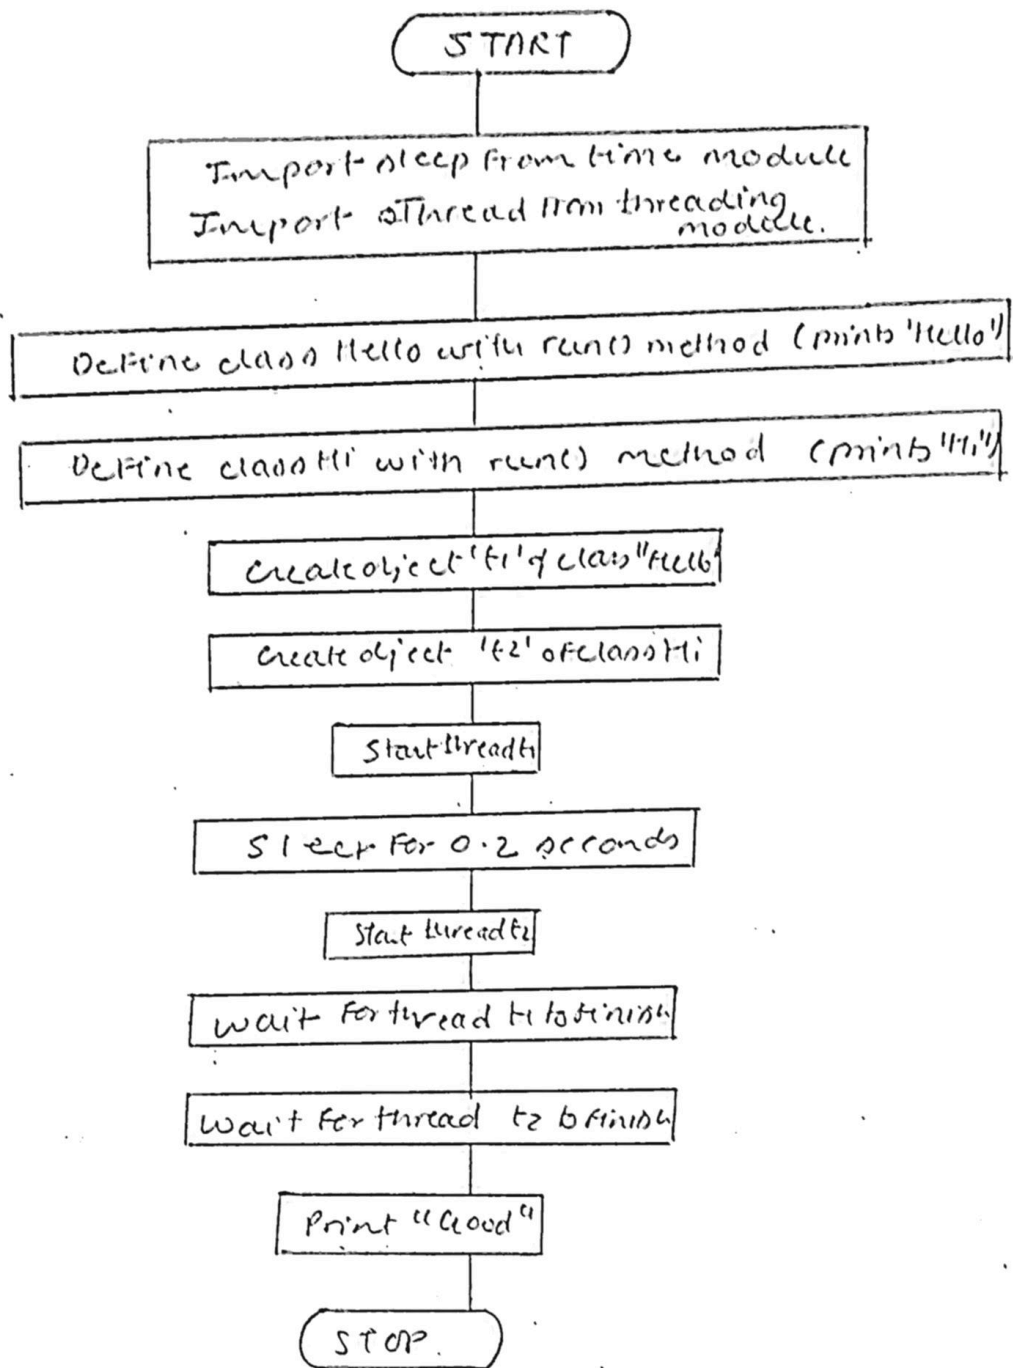 START
Import sleep from time module
Import Thread from threading
module.
Define class Hello with run() method (prints 'Hello')
Define class Hi with run() method (prints "Hi")
Create object 't1' of class "Hello"
Create object 't2' of class Hi
Start thread t1
Sleep for 0.2 seconds
Start thread t2
wait for thread t1 to finish
wait for thread t2 to finish
Print "Good"
STOP.